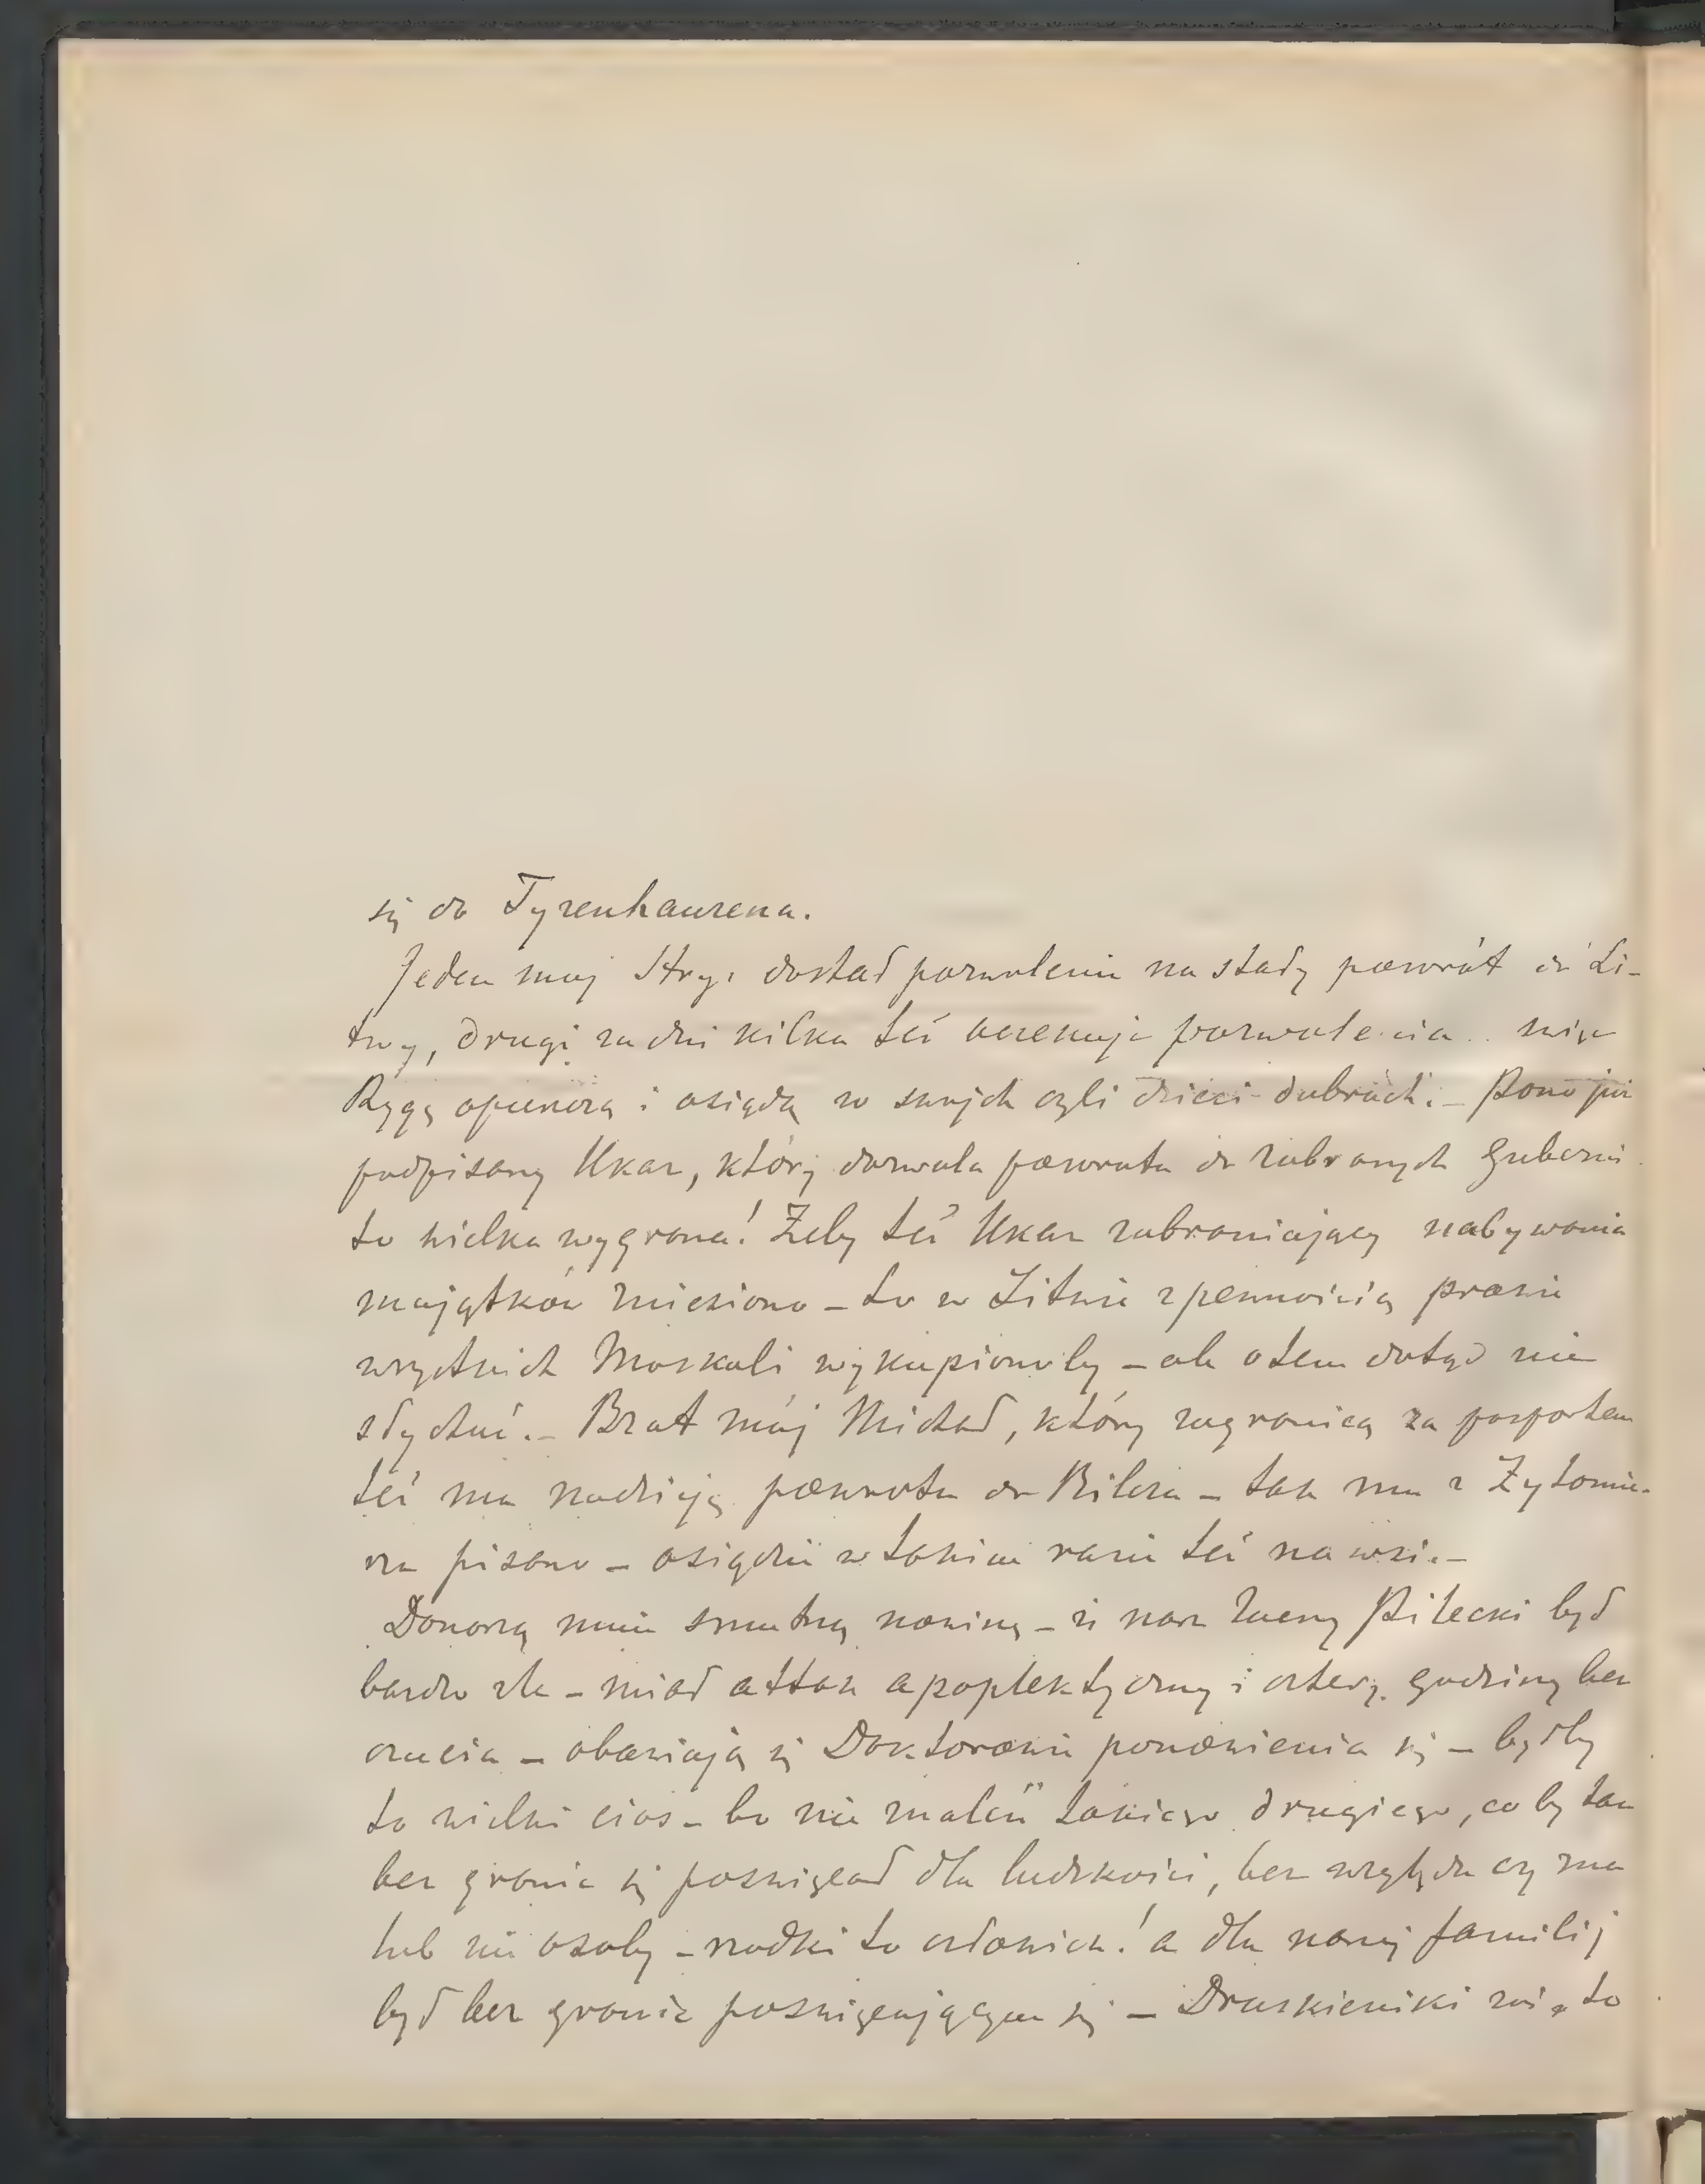 się do Tyzenhauzena.
Jeden mój Stryj dostał pozwolenie na stały powrót do Li-
twy, drugi za dni kilka też oczekuje pozwolenia .. więc
Rygę opuszczą i osiędą w swojch czyli dzieci dobrach. – Pono już
podpisany Ukaz, który dozwala powrotu do zabranych Gubernii
to wielka wygrana! Żeby też Ukaz zabraniający nabywania
majątków zniesiono – to w Litwie z pewnością prawie
wszystkich Moskali wykupionoby – ale o tem dotąd nie
słychać. – Brat mój Michał, który zagranicą za paszportem
też ma nadzieję powrotu do – tak mu z Żytomie-
rza pisano – osiędzie w takim razie też na wsi. –
Donoszą mnie smutną nowinę – że nasz zacny Pilecki był
bardzo źle – miał attak apoplektyczny i cztery godziny bez
czucia – obawiają się Doktorowie ponowienia się – byłby
to wielki cios – bo nie znaleść takiego drugiego, co by tak
bez granic się poswięcał dla ludzkości, bez względu czy zna
lub nie osoby – rzadki to człowiek! a dla naszej familij
był bez granic poswięcającym się – Druskieniki to